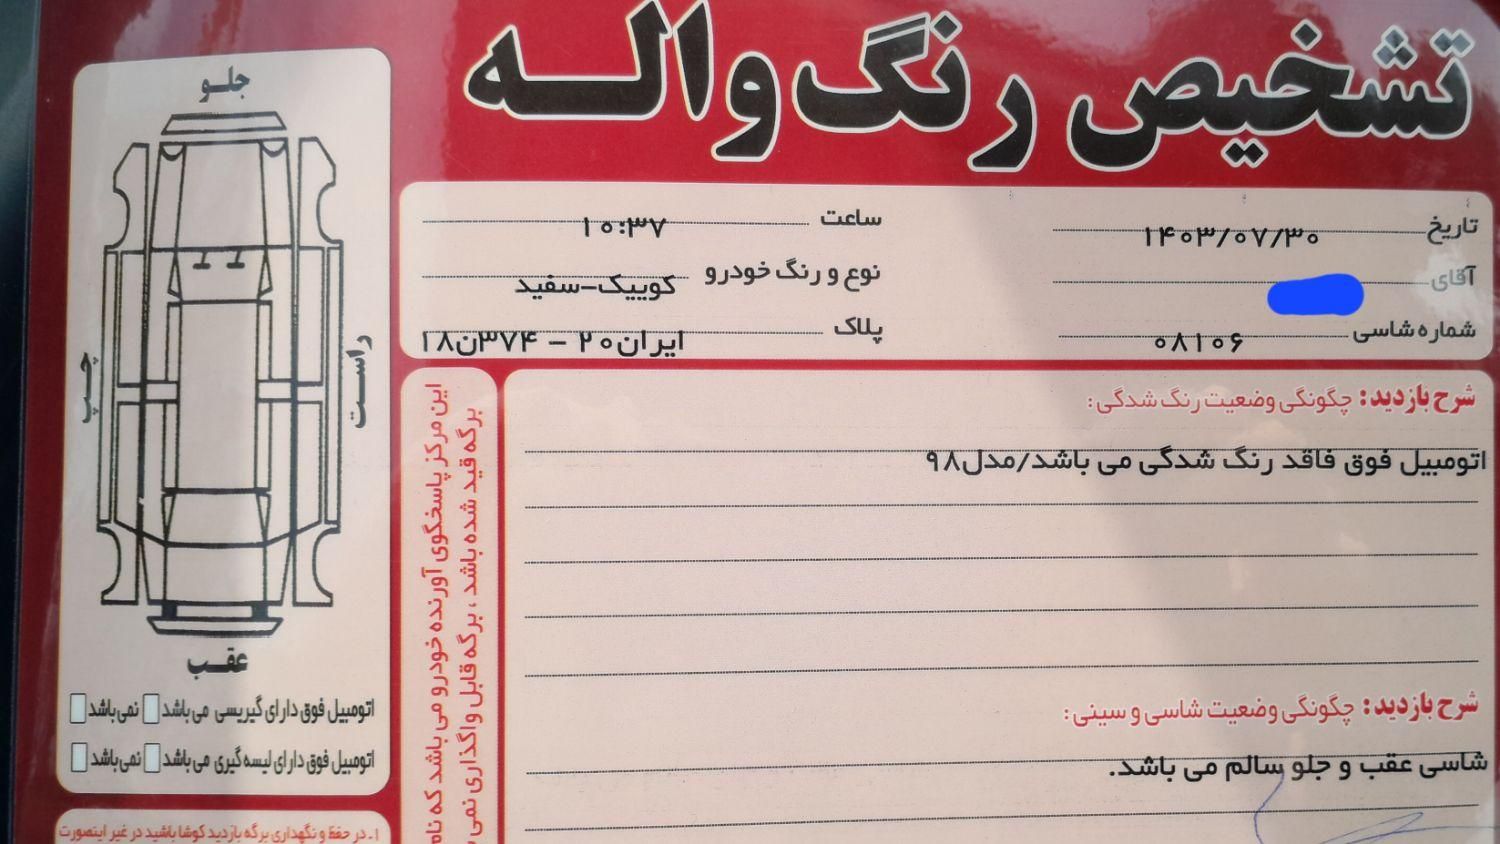 تشخیص رنگ واله
تاریخ ۱۴۰۳/۰۷/۳۰
ساعت ۱۰:۳۷
آقای
نوع و رنگ خودرو کوییک-سفید
شماره شاسی ۰۸۱۰۶
پلاک ایران۲۰ - ۳۷۴ن۱۸
شرح بازدید: چگونگی وضعیت رنگ شدگی:
اتومبیل فوق فاقد رنگ شدگی می باشد/مدل۹۸
شرح بازدید: چگونگی وضعیت شاسی و سینی:
شاسی عقب و جلو سالم می باشد.
این مرکز پاسخگوی آورنده خودرو می باشد که نام
برگه قید شده باشد ، برگه قابل واگذاری نمی
جلو
راست
چپ
عقب
اتومبیل فوق دارای گیریسی می باشد نمی باشد
اتومبیل فوق دارای لیسه گیری می باشد نمی باشد
۱ـ در حفظ و نگهداری برگه بازدید کوشا باشید در غیر اینصورت